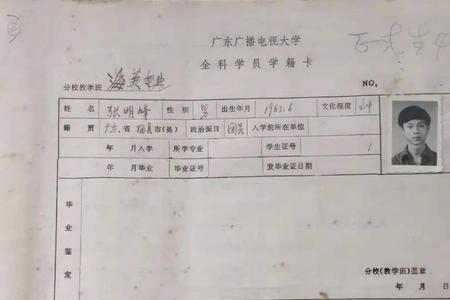 正式生
广东广播电视大学
全科学员学籍卡
分校教学班 海英专业 NO。
姓名 张明峰 性别 男 出生年月 1963.6 文化程度 高中
籍贯 广东省 梅县市(县) 政治面目 团员 入学前所在单位
年 月入学 所学专业 学生证号
年 月毕业 毕业证号 发毕业证日期
毕业鉴定
分校(教学班)盖章
年 月 日